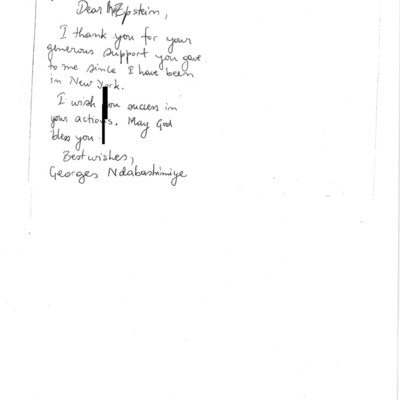 Dear Mr Epstein,
I thank you for your
generous support you gave
to me since I have been
in New York.
I wish you success in
your actions. May God
bless you.
Best wishes,
Georges Ndabashimiye